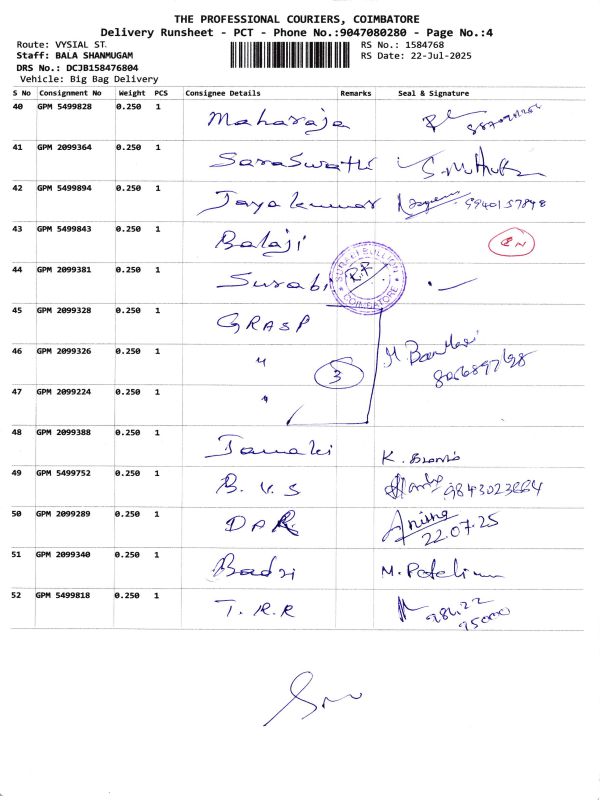 THE PROFESSIONAL COURIERS, COIMBATORE
Delivery Runsheet - PCT - Phone No.:9047080280 - Page No.:4
Route: VYSIAL ST. RS No.: 1584768
Staff: BALA SHANMUGAM RS Date: 22-Jul-2025
DRS No.: DCJB158476804
Vehicle: Big Bag Delivery
S No Consignment No Weight PCS Consignee Details Remarks Seal & Signature
40 GPM 5499828 0.250 1 Maharaja
41 GPM 2099364 0.250 1 Saraswathi
42 GPM 5499894 0.250 1 Jayakumar 9940157848
43 GPM 5499843 0.250 1 Balaji
44 GPM 2099381 0.250 1 Surabi R.R COIMBATORE
45 GPM 2099328 0.250 1 GRASP
46 GPM 2099326 0.250 1 " 3
47 GPM 2099224 0.250 1 "
48 GPM 2099388 0.250 1 K.
49 GPM 5499752 0.250 1 B. V. S
50 GPM 2099289 0.250 1 22.07.25
51 GPM 2099340 0.250 1 Badri M.
52 GPM 5499818 0.250 1 T. R. R